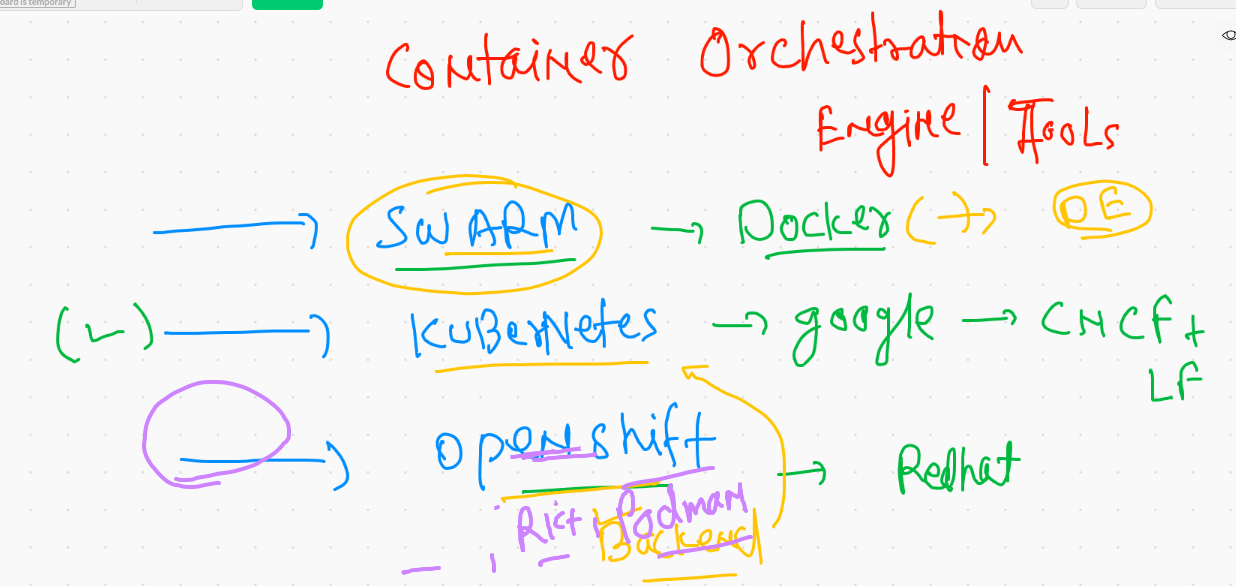 oard is temporary
Container Orchestration
Engine | Tools
SWARM → Docker (→) DE
(✓) → Kubernetes → google → CNCF +
LF
Openshift → Redhat
, , Podman
Backend